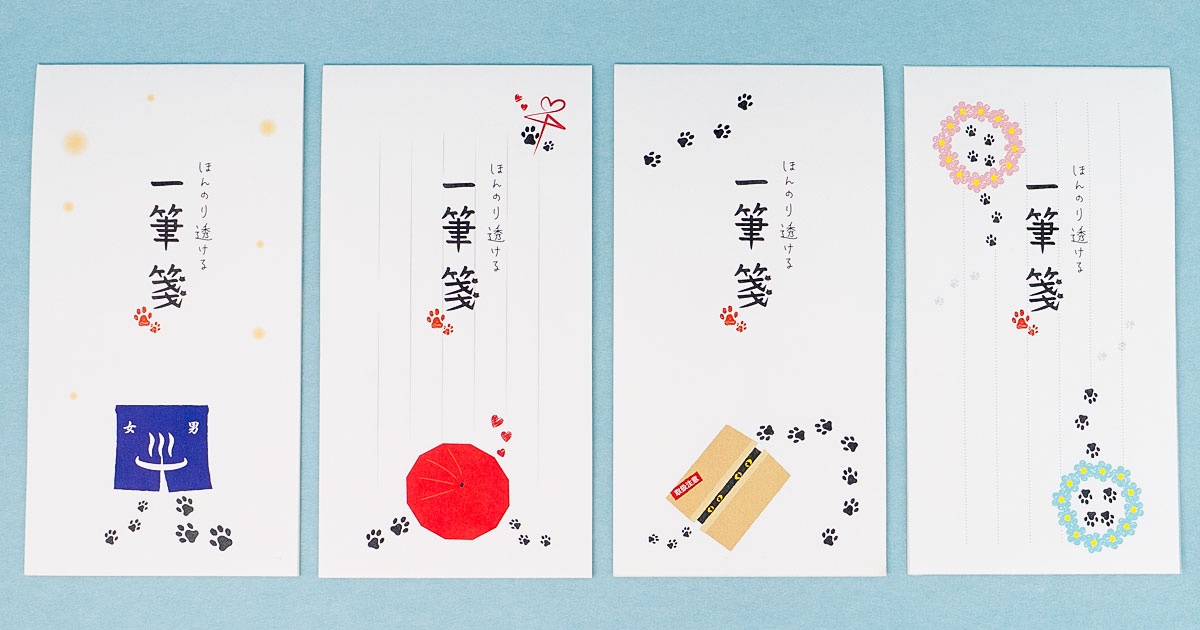 ほんのり透ける
一筆箋
女 男
ほんのり透ける
一筆箋
ほんのり透ける
一筆箋
取扱注意
ほんのり透ける
一筆箋